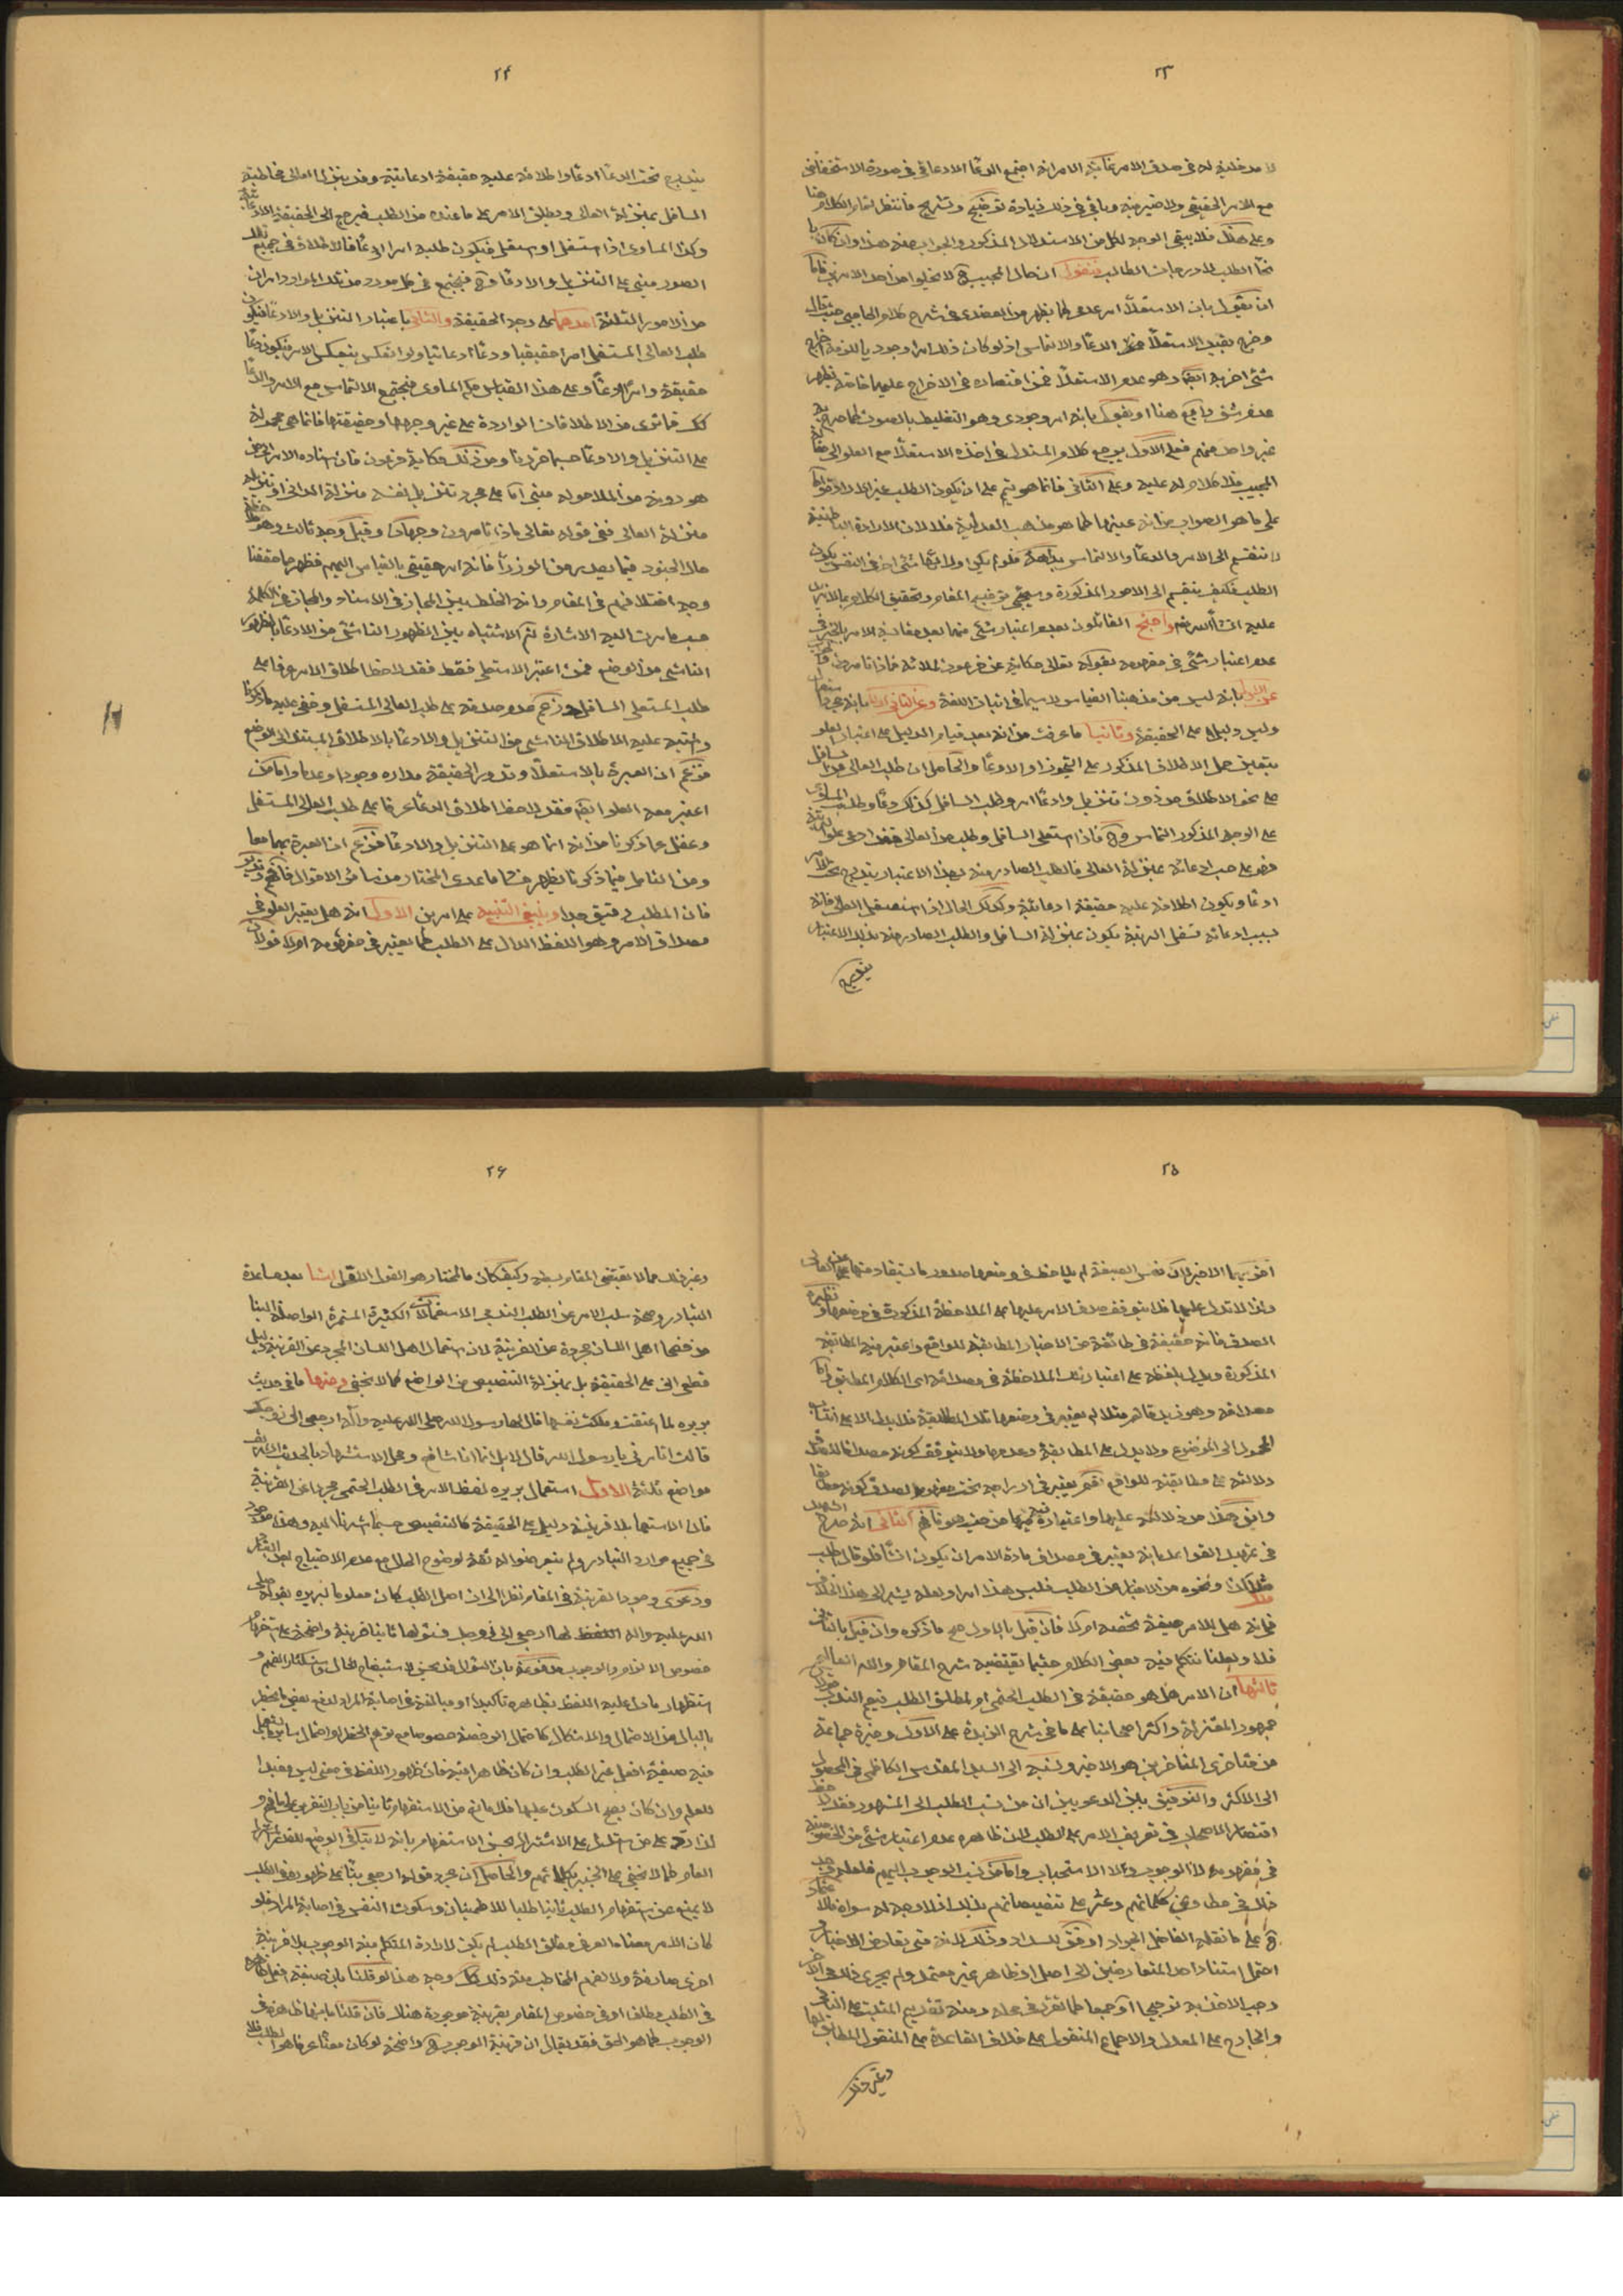 ٢٣
لا مدخلية له في صدق الامر غاية الامر انه اجتمع الدعاء الادعائي في صورة الاستخفاض
مع الامر الحقيقي ولا ضير فيه ويأتي في ذلك زيادة توضيح وتشريح فانتظر لتمام الكلام هنا
وعلى هذا فلا يبقى الوجه لكل من الاستدلال المذكور والجواب عنه هذا وان كان
الطلب للادرجات الطالب فنقول ان حال المجيب لا يخلو من احد الامرين فاما
ان يقول بان الاستعلاء امر عدمي كما يظهر من العضدي في شرح كلام الحاجبي حيث قال
وخرج بقيد الاستعلاء الدعاء والالتماس اذ لو كان ذلك امرا وجوديا
شيء اخر به ايضا وهو عدم الاستعلاء فمن اقتصاره في الاخراج عليهما خاصة يظهر
هنا او يقول بانه امر وجودي وهو التغليظ بالصوت كما صرح به
غير واحد منهم فعلى الاول يرجع كلام المستدل في اخذه الاستعلاء مع العلو الى
المجيب فلا كلام له عليه وعلى الثاني فانما هو يتم على ان يكون الطلب غير الارادة
على ما هو الصواب من انه عينها كما هو مذهب العدلية فلا لان الارادة الباطنية
لا تنقسم الى الامر والدعاء والالتماس
الطلب فكيف ينقسم الى الامور المذكورة وسيجيء توضيح المقام وتحقيق الكلام
عليه ان شاء الله واحتج القائلون بعدم اعتبار شيء منهما
عدم اعتبار شيء في مفهومه بقوله تعالى حكاية عن فرعون لملائه فماذا تامرون
بانه ليس من مذهبنا القياس لا سيما في اثبات اللغة وعن الثاني اولا بانه مجرد
وليس دليلا على الحقيقة وثانيا ما عرفت من انه بعد قيام الدليل على اعتبار العلو
يتعين حمل الاطلاق المذكور على التجوز او الادعاء والحاصل ان طلب العالي من السافل
على نحو الاطلاق من دون تنزيل وادعاء امر وطلب السافل كذلك دعاء وطلب المساوي
على الوجه المذكور التماس وح فاذا استعلى السافل وطلب من العالي فقد ادعى علو
فهو على حسب ادعائه بمنزلة العالي فالطلب الصادر منه بهذا الاعتبار يندرج تحت الامر
ادعاء ويكون اطلاقه عليه حقيقة ادعائية وكذلك الحال اذا استسفل العالي فانه
بسبب ادعائه تسفل الرتبة يكون بمنزلة السافل والطلب الصادر منه بذلك الاعتبار
يندرج
٢٤
يندرج تحت الدعاء ادعاء واطلاقه عليه حقيقة ادعائية وقد ينزل العالي مخاطبه
السافل بمنزلة العالي ويطلق الامر على ما عنده من الطلب فيرجع الى الحقيقة الادعائية
وكذا المساوي اذا استعلى او استسفل فيكون طلبه امرا او دعاء فالاطلاق في جميع تلك
الصور مبني على التنزيل والادعاء وح فيجتمع في كل مورد من تلك الموارد امران
من الامور الثلثة احدهما على وجه الحقيقة والثاني باعتبار التنزيل والادعاء فيكون
طلب العالي المستعلي امرا حقيقيا ودعاء ادعائيا ولو انعكس ينعكس الامر فيكون دعاء
حقيقة وامرا ادعاء وعلى هذا القياس حكم المساوي فيجتمع الالتماس مع الامر والدعاء
كك فما ترى من الاطلاقات الواردة على غير وجهها وحقيقتها فانما هي محمولة
على التنزيل والادعاء حسبما قررنا ومن ذلك حكاية فرعون فان اسناده الامر الى من
هو دونه من الملا حوله مبني اما على مجرد تنزيل نفسه منزلة الداني او تنزيله
منزلة العالي ففي قوله تعالى ماذا تامرون وجهان وقيل وجه ثالث وهو
حال الجنود فيما يصدر من الوزراء فانه امر حقيقي بالقياس اليهم فظهر مما حققنا
وجه اختلافهم في المقام وانه الخلط بين المجاز في الاسناد والمجاز في الكلمة
حسبما مرت اليه الاشارة ثم الاشتباه بين الظهور الناشئ من الادعاء بالظهور
الناشي من الوضع فمن اعتبر الاستعلاء فقط فقد لاحظ اطلاق الامر عرفا على
طلب المستعلي السافل وزعم عدم صدقه على طلب العالي المستسفل وخفي عليه ما ذكرنا
واشتبه عليه الاطلاق الناشي من التنزيل والادعاء بالاطلاق المستند الى الوضع
فزعم ان العبرة بالاستعلاء وتدور الحقيقة مداره وجودا وعدما واما من
اعتبر معه العلو ايضا فقد لاحظ اطلاق الدعاء عرفا على طلب العالي المستسفل
وغفل عما ذكرنا من انه انما هو على التنزيل والادعاء فزعم ان العبرة بهما معا
ومن التامل فيما ذكرنا يظهر منشا ما عدى المختار من سائر الاقوال فافهم وتدبر
فان المطلب دقيق جدا وينبغي التنبيه على امرين الاول انه هل يعتبر العلو في
مصداق الامر وهو اللفظ الدال على الطلب كما يعتبر في مفهومه ام لا قولان
٢٥
اقويهما الاخير لان نفس الصيغة لم يلاحظ في وضعها صدور ما يستفاد منها عن العالي
ولذا لا تدل عليها فلا يتوقف صدق الامر عليها على الملاحظة المذكورة في وضعها ونظيره
الصدق فانه حقيقة في طائفة من الاخبار المطابقة للواقع واعتبر فيه المطابقة
المذكورة ويدل بلفظه على اعتبار تلك الملاحظة في مصداقه اي الكلام المطابق اما
مصداقه وهو زيد قائم مثلا لم يعتبر في وضعها تلك المطابقة فلا يدل الا على انتساب
المحمول الى الموضوع ولا يدل على المطابقة وعدمها ولا يتوقف كونه مصداقا للصدق
دلالته على مطابقته للواقع نعم يعتبر في ادراجه تحت مفهوم الصدق كونه مطابقا
واين هذا من دلالته عليها واعتباره فيها من حيث هو فافهم الثاني انه صرح الشهيد
في تمهيد القواعد بانه يعتبر في مصداق مادة الامر ان يكون انشاء فلو قال اطلب
منك كذا ونحوه من الاخبار عن الطلب فليس هذا امرا ولعله يشير الى هذا الخلاف
في انه هل للامر صيغة تخصه ام لا فان قيل بالاول صح ما ذكره وان قيل بالثاني
فلا ولعلنا نتكلم فيه بعض الكلام حيثما يقتضيه شرح المقام والله العالم
ثالثها ان الامر هل هو حقيقة في الطلب الحتمي او لمطلق الطلب فيعم الندب
جمهور المعتزلة واكثر اصحابنا على ما في شرح الزبدة على الاول وخيرة جماعة
من متاخري المتاخرين هو الاخير ونسبه السيد المقدس الكاظمي في المحصول
الى الاكثر والتوفيق بين الدعويين ان من نسب الطلب الى المشهور فقد لاحظ
اقتصار الاصحاب في تعريف الامر على الطلب فان ظاهره عدم اعتبار شيء من الخصوصية
في مفهومه لا الوجوب ولا الاستحباب واما من نسب الوجوب اليهم فلعله وجد
ذلك في مطاوي كلماتهم وعثر على تنصيصاتهم بذلك اذ لا وجه له سواه
على ما نقله الفاضل الجواد اوفق بالسداد وذلك لانه متى تعارض الاخبار
احتمل استناد احد المتعارضين الى اصل او ظاهر غير معتمد ولم يجرى ذلك في الاخر
وجب الاخذ به ترجيحا او جمعا كما تقرر في محله ومنه تقديم المثبت على النافي
والجارح على المعدل والاجماع المنقول على خلاف القاعدة على المنقول المطابق لها
وغير ذلك
٢٦
وغير ذلك مما لا يقتضي المقام بسطه وكيف كان فالمختار هو القول الاول لنا بعد مساعدة
التبادر وصحة سلب الامر عن الطلب الندبي الاستعمالات الكثيرة المستمرة الواصلة الينا
من فصحا اهل اللسان مجردة عن القرينة لان استعمال اهل اللسان المجرد عن القرينة دليل
قطعي اني على الحقيقة بل بمنزلة التنصيص من الواضع كما لا يخفى ومنها ما في حديث
بريره لما اعتقت وملكت نفسها قال لها رسول الله صلى الله عليه واله ارجعي الى زوجك
قالت اتامرني يا رسول الله قال لا بل انما انا شافع ومحل الاستشهاد بالحديث الشريف
مواضع ثلثة الاول استعمال بريره لفظ الامر في الطلب الحتمي مجردا عن القرينة
فان الاستعمال بلا قرينة دليل على الحقيقة كالتنصيص حسبما اشرنا اليه وهذا موجود
في جميع موارد التبادر ولم يتعرضوا له ثمة لوضوح الحال مع عدم الاحتياج
ودعوى وجود القرينة في المقام نظرا الى ان اصل الطلب كان معلوما لبريره بقوله صلى
الله عليه واله اللفظ لها ارجعي الى زوجك فسؤالها ثانيا قرينة واضحة على استخبارها
خصوص الالزام والوجوب مدفوعة بان السؤال قد يحسن لاستيضاح الحال واستكشاف الفهم و
استظهار ما دل عليه اللفظ بظاهره تاكيدا او مبالغة في اصابة المراد لدفع بعض ما يخطر
بالبال من الاحتمال والاشكال كاحتمال الرخصة خصوصا مع توهم الحظر او احتمال
فيه صيغة افعل غير الطلب وان كان ظاهرا فيه فان ظهور اللفظ في معنى ليس مفيدا
للعلم وان كان يصح السكون عليها فلا مانع من الاستفهام ثانيا من باب التقرير
لذا رد على من استدل على الاشتراك بحسن الاستفهام بانه لا ينافي الوضع للقدر
العام كما لا يخفى على الخبير بكلماتهم والحاصل ان مجرد قوله ارجعي بناء على ظهوره في الطلب
لا يمنع من استفهام الطلب ثانيا طلبا للاطمينان وسكون النفس في اصابة المراد فلو
كان الامر معناه العرفي مطلق الطلب لم يكن لارادة المتكلم منه الوجوب بلا قرينة
اخرى صارفة ولا لفهم المخاطب منه ذلك وجه هذا لو قلنا بان صيغة افعل ظاهرة
في الطلب مطلقا او في خصوص المقام بقرينة موجودة هناك فان قلنا بانها ظاهرة في
الوجوب كما هو الحق فقد يقال ان قرينة الوجوب واضحة لو كان معناه عرفا هو الطلب فلا